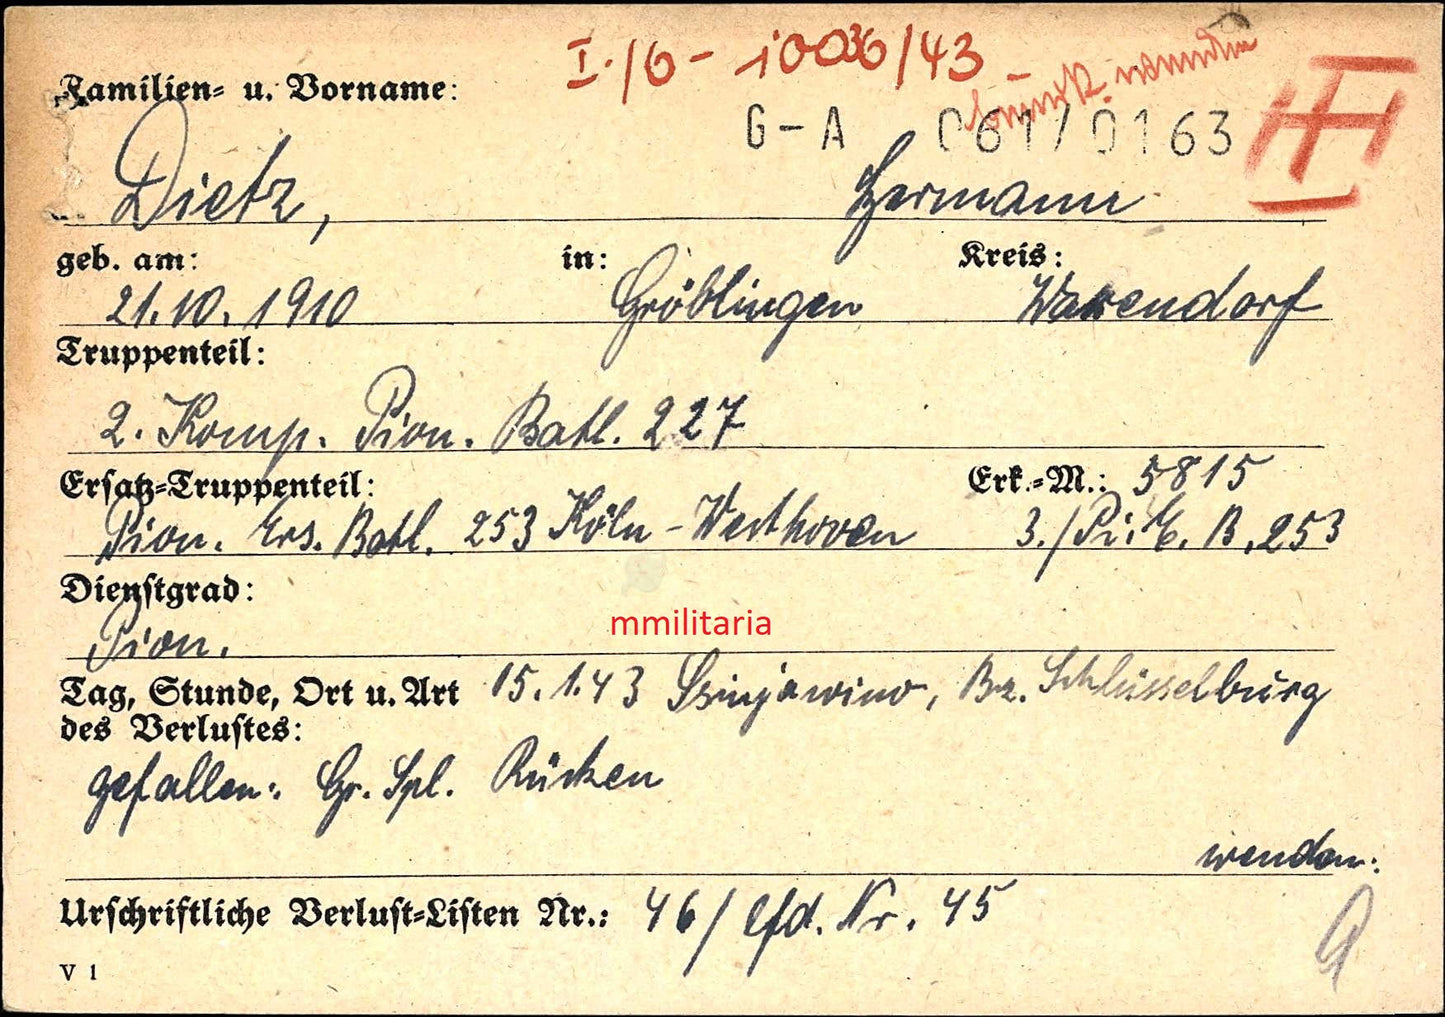 I./6 - 10036/43 -
Familien- u. Vorname:
G-A 061/0163
Dietz, Hermann
geb. am: in: Kreis:
21.10.1910 Gröblingen Warendorf
Truppenteil:
2. Komp. Pion. Batl. 227
Ersatz-Truppenteil: Erk.-M.: 5815
Pion. Ers. Batl. 253 Köln-Westhoven 3./Pi. E. B. 253
Dienstgrad:
Pion.
mmilitaria
Tag, Stunde, Ort u. Art 15.1.43 Ssinjawino, Bz. Schlüsselburg
des Verlustes:
gefallen: Gr. Spl. Rücken
wenden:
Urschriftliche Verlust-Listen Nr.: 46/lfd. Nr. 45
V 1